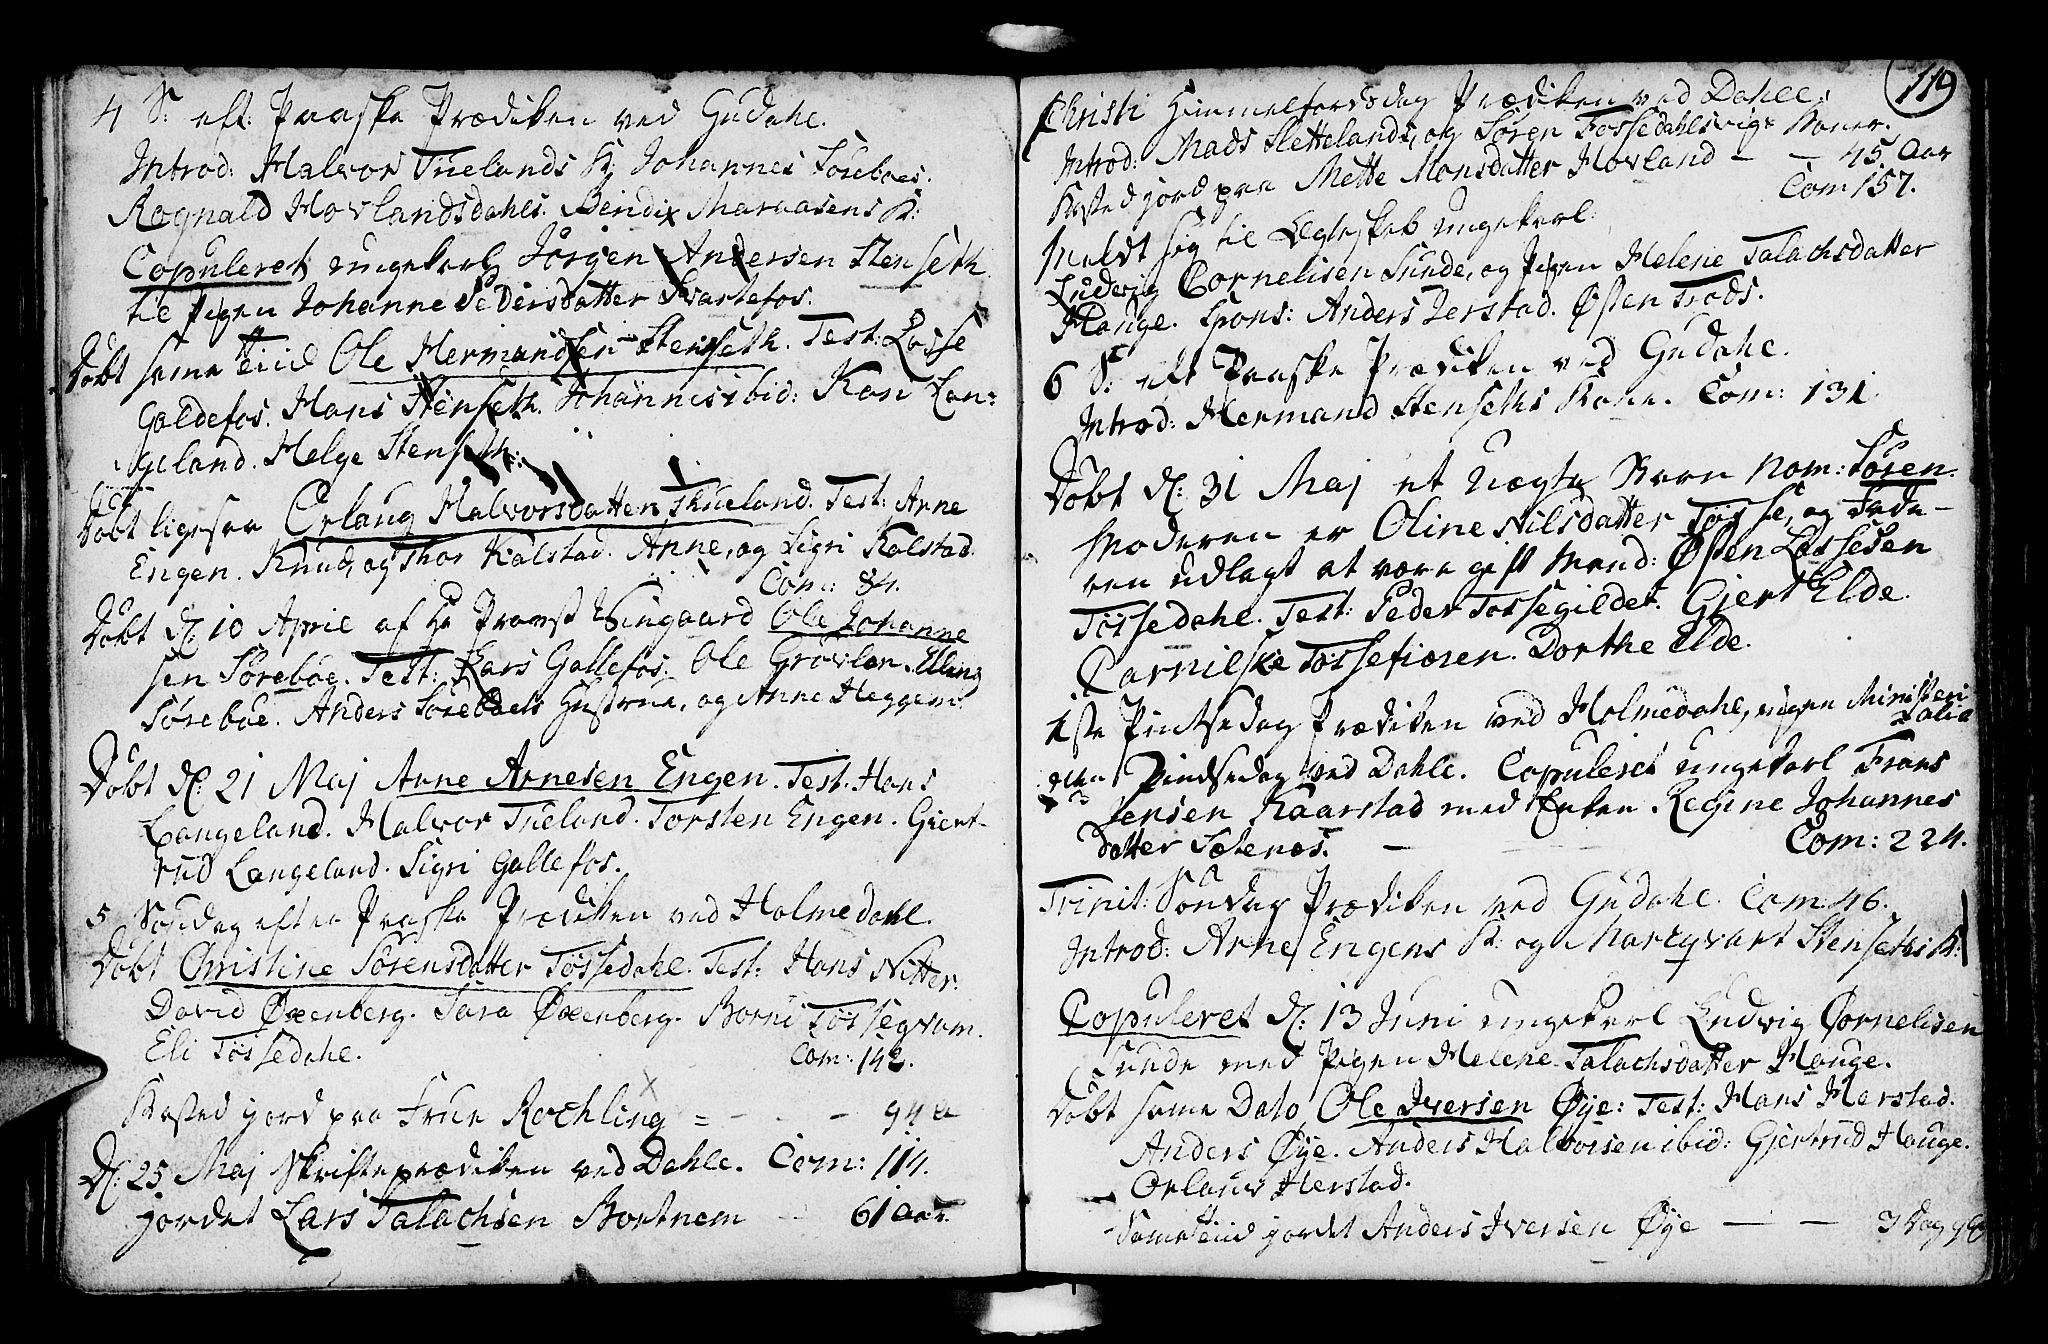 4 S: eft: Paaske Prædiken ved Gudahl.
Introd: Halvor Tuelands K: Johannes Sörebøes.
Rognald Hovlandsdahls. Bendix Maraasens K:
Copuleret ungekarl Jörgen Andersen Stenseth
til Pigen Johanne Pedersdatter Svartefos.
Döbt samme Tiid Ole Hermandsen Stenseth. Test: Lasse
Galdefos. Hans Stenseth. Johannes ibid: Kari Lan-
geland. Helge Stenseth.
Döbt ligesaa Orlaug Halvorsdatter Thueland. Test: Arne
Engen. Knud, og Thor Kalstad. Anne, og Sigri Kalstad.
Com: 84.
Döbt d: 10 April af Hr Provst Wingaard Ole Johanne
sen Sörebøe. Test: Lars Gallefos. Ole Grövlen. Ellang
Sörebøe. Anders Sörebøes Hustrue, og Anne Heggem.
Döbt d: 21 Maj Arne Arnesen Engen. Test: Hans
Langeland. Halvor Tueland. Torsten Engen. Giert-
rud Langeland. Sigri Gallefos.
5 Söndag efter Paaske Prædiken ved Holmedahl.
Döbt Christine Sörensdatter Tössedahl. Test: Hans Nitter.
David Øxenberg. Sara Øxenberg. Borni Tössegvam.
Eli Tössedahl.
Com: 142.
Kasted jord paa Frue Rochling = - - - 94 a
D: 25 Maj Skrifteprædiken ved Dahle. Com: 114.
jordet Lars Talachsen Bortnem - 61 Aar.
119
Christi Himmelfartsdag Prædiken ved Dahle.
Introd: Mads Slettelands, og Sören Tossedahlsvigs Koner.
Kasted jord paa Mette Monsdatter Hovland - - 45 Aar
Com 157.
Meldt sig til Ægteskab ungekarl
Ludevig Cornelisen Sunde, og Pigen Helene Talachsdatter
Hauge. Spons: Anders Jerstad. Østen Trods.
6 S: eft Paaske Prædiken ved Gudahl.
Introd: Hermand Stenseths Kone. Com: 131
Döbt d: 31 Maj et Uægte Barn nom: Sören.
Moderen er Oline Nilsdatter Tösse, og Fade-
ren udlagt at være gift Mand: Østen Lassesen
Tössedahl. Test: Peder Tossegildet. Gjert Elde.
Carnilske Tössefiøren. Dorthe Elde.
1ste Pintsedag Prædiken ved Holmedahl, ingen Ministeri
alia
den Pindsedag ved Dahle. Copuleret ungekarl Frans
Jensen Kaarstad med Enken Regine Johannes
datter Sætenæs. - Com: 224.
Trinit: Söndag Prædiken ved Gudahl. Com: 46.
Introd: Arne Engens K: og Marqvart Stenseths K:
Copuleret d: 13 Juni ungekarl Ludvig Cornelisen
Sunde med Pigen Helene Talachsdatter Hauge.
Döbt samme Dato Ole Iversen Øye: Test: Hans Herstad.
Anders Øye. Anders Halvorsen ibid: Gjertrud Hauge.
Orlaug Herstad.
Samme Tiid jordet Anders Iversen Øye - - 3 Dag gl